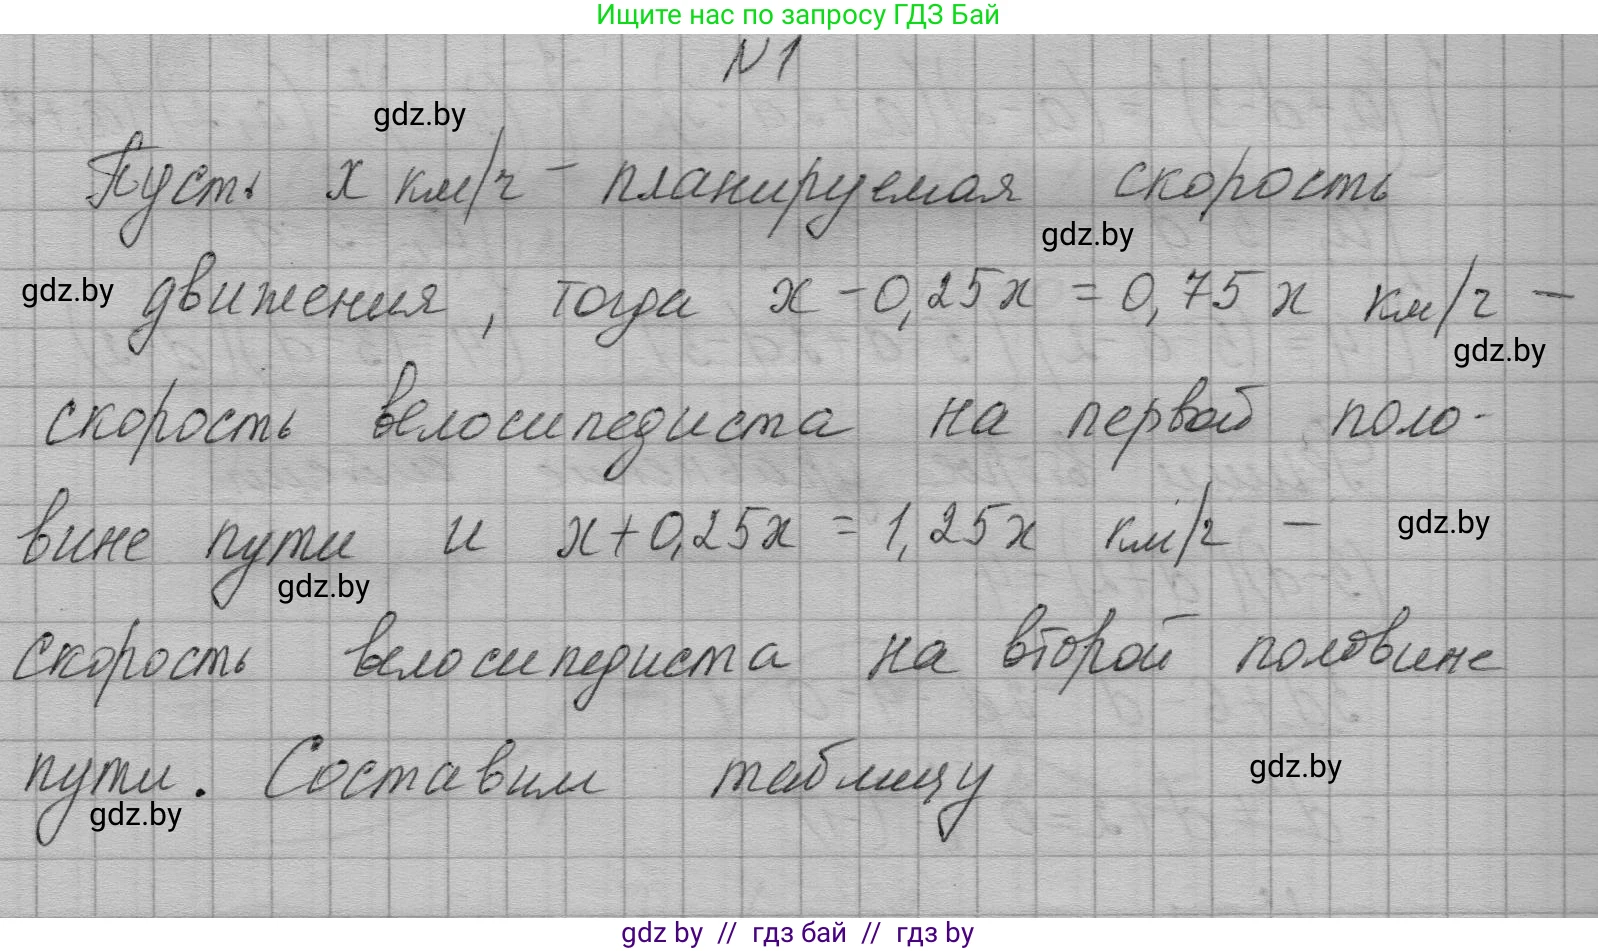 Ищите нас по запросу ГДЗ Бай
N1
gdz.by
Пусть x км/ч – планируемая скорость
gdz.by
gdz.by
движения, тогда x - 0,25x = 0,75x км/ч –
gdz.by
скорость велосипедиста на первой поло-
вине пути и x + 0,25x = 1,25x км/ч –
gdz.by
gdz.by
скорость велосипедиста на второй половине
пути. Составим таблицу
gdz.by
gdz.by
gdz by // гдз бай // гдз by